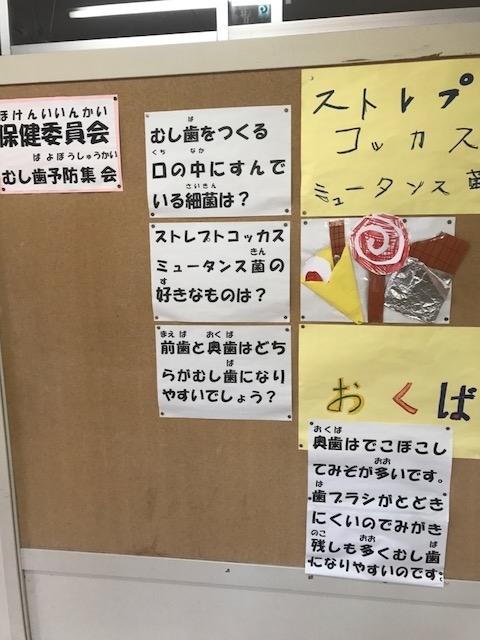 ほけんいいんかい
保健委員会
ばよぼうしゅうかい
むし歯予防集会
ば
むし歯をつくる
くち なか
口の中にすんで
さいきん
いる細菌は？
ストレプトコッカス
きん
ミュータンス菌の
す
好きなものは？
まえば おくば
前歯と奥歯はどち
ば
らがむし歯になり
やすいでしょう？
ストレプ
コッカス
ミュータンス菌
おくば
おくば
奥歯はでこぼこし
おお
てみぞが多いです。
は
歯ブラシがとどき
にくいのでみがき
のこ おお ば
残しも多くむし歯
になりやすいのです。